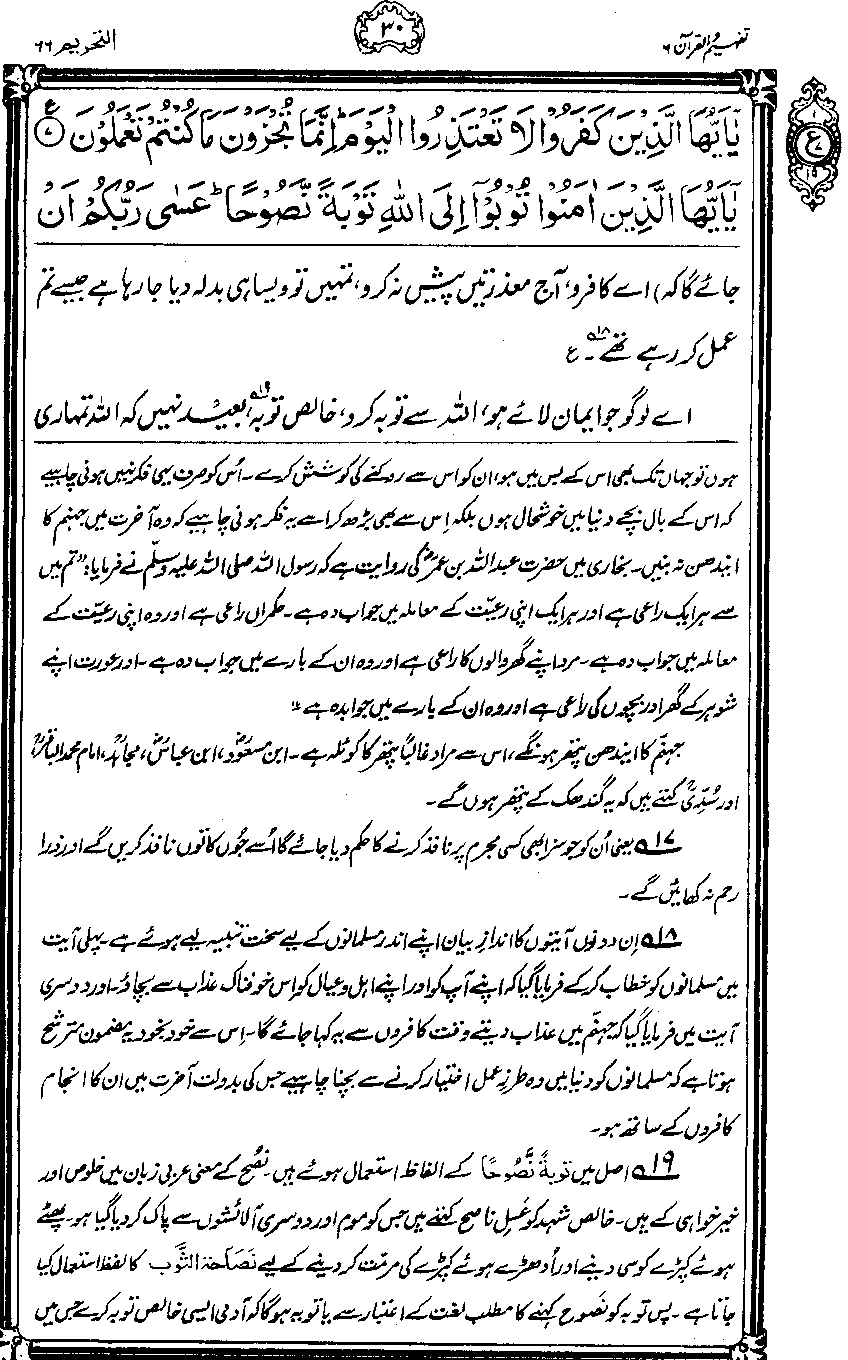 تفہیم القرآن ۶
۳۰
التحریم ۶۶
يٰۤاَيُّهَا الَّذِيْنَ كَفَرُوْا لَا تَعْتَذِرُوا الْيَوْمَ ؕ اِنَّمَا تُجْزَوْنَ مَا كُنْتُمْ تَعْمَلُوْنَ ۷ ع
يٰۤاَيُّهَا الَّذِيْنَ اٰمَنُوْا تُوْبُوْۤا اِلَى اللّٰهِ تَوْبَةً نَّصُوْحًا ؕ عَسٰى رَبُّكُمْ اَنْ
جائے گا کہ) اے کافرو، آج معذرتیں پیش نہ کرو، تمہیں تو ویسا ہی بدلہ دیا جا رہا ہے جیسے تم
عمل کر رہے تھے۱۸۔ ع
اے لوگو جو ایمان لائے ہو، اللہ سے توبہ کرو، خالص توبہ۱۹، بعید نہیں کہ اللہ تمہاری
ہوں تو جہاں تک بھی اس کے بس میں ہو، ان کو اس سے روکنے کی کوشش کرے۔ اُس کو صرف یہی فکر نہیں ہونی چاہیے
کہ اس کے بال بچے دنیا میں خوشحال ہوں بلکہ اِس سے بھی بڑھ کر اسے یہ فکر ہونی چاہیے کہ وہ آخرت میں جہنم کا
ایندھن نہ بنیں۔ بخاری میں حضرت عبداللہ بن عمرؓ کی روایت ہے کہ رسول اللہ صلی اللہ علیہ وسلم نے فرمایا: "تم میں
سے ہر ایک راعی ہے اور ہر ایک اپنی رعیّت کے معاملہ میں جواب دہ ہے۔ حکمراں راعی ہے اور وہ اپنی رعیّت کے
معاملہ میں جواب دہ ہے۔ مرد اپنے گھر والوں کا راعی ہے اور وہ ان کے بارے میں جواب دہ ہے۔ اور عورت اپنے
شوہر کے گھر اور بچوں کی راعی ہے اور وہ ان کے بارے میں جوابدہ ہے"۔
جہنّم کا ایندھن پتھر ہونگے، اس سے مراد غالباً پتھر کا کوئلہ ہے۔ ابن مسعودؓ، ابن عباسؓ، مجاہدؒ، امام محمد الباقرؒ
اور سُدّیؒ کہتے ہیں کہ یہ گندھک کے پتھر ہوں گے۔
۱۷ یعنی اُن کو جو سزا بھی کسی مجرم پر نافذ کرنے کا حکم دیا جائے گا اُسے جُوں کا توں نافذ کریں گے اور ذرا
رحم نہ کھائیں گے۔
۱۸ اِن دونوں آیتوں کا انداز بیان اپنے اندر مسلمانوں کے لیے سخت تنبیہ لیے ہوئے ہے۔ پہلی آیت
میں مسلمانوں کو خطاب کرکے فرمایا گیا کہ اپنے آپ کو اور اپنے اہل و عیال کو اِس خوفناک عذاب سے بچاؤ۔ اور دوسری
آیت میں فرمایا گیا کہ جہنّم میں عذاب دیتے وقت کافروں سے یہ کہا جائے گا۔ اِس سے خود بخود یہ مضمون مترشح
ہوتا ہے کہ مسلمانوں کو دنیا میں وہ طرزِ عمل اختیار کرنے سے بچنا چاہیے جس کی بدولت آخرت میں ان کا انجام
کافروں کے ساتھ ہو۔
۱۹ اصل میں تَوْبَةً نَّصُوْحًا کے الفاظ استعمال ہوئے ہیں۔ نصح کے معنی عربی زبان میں خلوص اور
خیر خواہی کے ہیں۔ خالص شہد کو عَسلِ ناصح کہتے ہیں جس کو موم اور دوسری آلائشوں سے پاک کر دیا گیا ہو۔ پھٹے
ہوئے کپڑے کو سی دینے اور اُدھڑے ہوئے کپڑے کی مرمّت کر دینے کے لیے نَصَاحَةُ الثَّوب کا لفظ استعمال کیا
جاتا ہے۔ پس توبہ کو نصوح کہنے کا مطلب لغت کے اعتبار سے یا تو یہ ہوگا کہ آدمی ایسی خالص توبہ کرے جس میں